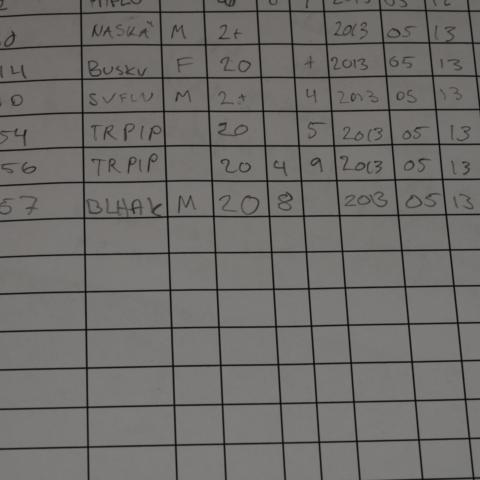 NASKA M 2+ 2013 05 13
14 BUSKU F 20 + 2013 05 13
0 SVFLU M 2+ 4 2013 05 13
54 TRPIP 20 5 2013 05 13
56 TRPIP 20 4 9 2013 05 13
57 BLHAK M 20 8 2013 05 13